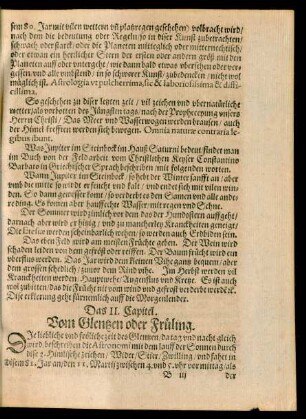 sem 80. Jar mit vilen wettern vñ platzregen geschehen / volbracht wird /
nach dem die bedeutung oder Regeln so in diser Kunst zubetrachten /
schwach oder starck / oder die Planeten mitteglich oder mitternechtisch /
oder etwan ein herrlicher Stern des ersten oder andern größ mit den
Planeten auff oder untergeht / wie dann bald etwas ubersehen oder ver-
gessen und alle umbstend / in so schwerer Kunst / zubedencken / nicht wol
müglich ist. Astrologia ut pulcherrima, sic & laboriosissima & diffi-
cillima.
So geschehen zu diser letzten zeit / vil zeichen und ubernatürliche
wetter / als vorbotten des Jüngsten tags / nach der Prophecepung unsers
Herrn Christi / Das Meer und Wasserwogen werden brausen / auch
der Himel krefften werden sich bewegen. Omnia naturæ contraria le-
gibus ibunt.
Was Jupiter im Steinbock im Hauß Saturni bedeut findet man
im Buch von der Feld arbeit vom Christlichen Keyser Constantino
Barbato in Griechischer Sprach beschriben mit folgenden worten.
Wann Jupiter im Steinbock / so hebt der Winter sanfft an / aber
umb die mitte so wird er feucht und kalt / und endet sich mit vilen win-
den. So dann gewesser komt / so verderbt es den Samen und alle ande-
re ding. Es komen aber hauffechte Wasser mit regen und Schne.
Der Sommer wird zimlich vor dem das der Hundsstern auff geht /
darnach aber wird er hitzig / und zu mancherley Kranckheiten geneigt /
Die lüest so werden scheinbarlich wehen / so werden auch Erdbidem sein.
Das eben Feld wird am meisten Früchte geben. Der Wein wird
schaden leiden von dem gefröst oder ereiffen. Der Baum frücht wird ein
uberfluß werden. Das Jar wird dem kleinen Vihe gang bequem / aber
dem grossen schedlich / zuvor dem Rind vihe. Im Herbst werden vil
Kranckheiten werden. Hauptwehe / Augenfluß und Kretze. Es ist auch
wol zubitten / das die Früchte nit vom wind und gefröst verderbt werdẽ.
Dise erklerung geht fürnemlich auff die Morgenlender.
Das II. Capitel.
Vom Glentzen oder Früling.
DIe liebliche und fröliche zeit des Glentzen / da tag und nacht gleich
wird / beschreiben die Astronomi mit dem lauff der Sonnen durch
dise 3. Himlische zeichen / Wider / Stier / Zwilling / und fahet in
disem 81. Jar an / den 11. Martij zwischen 4. und 5. uhr vormittag / als
B iij
der